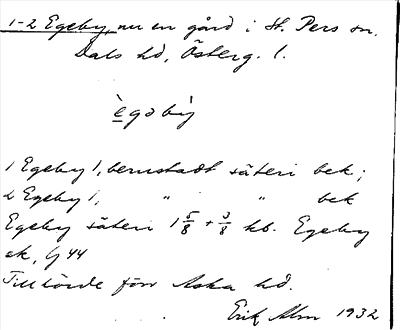 1-2 Egeby, nu en gård i St. Pers sn.
Dals hd, Österg. l.
ègəbỳ
1 Egeby 1, berustadt säteri bek;
2 Egeby 1, " " bek
Egeby säteri 1 5/8 + 3/8 hb. Egeby
ek, Lj 44
Tillhörde förr Aska hd.
Erik Alm 1932